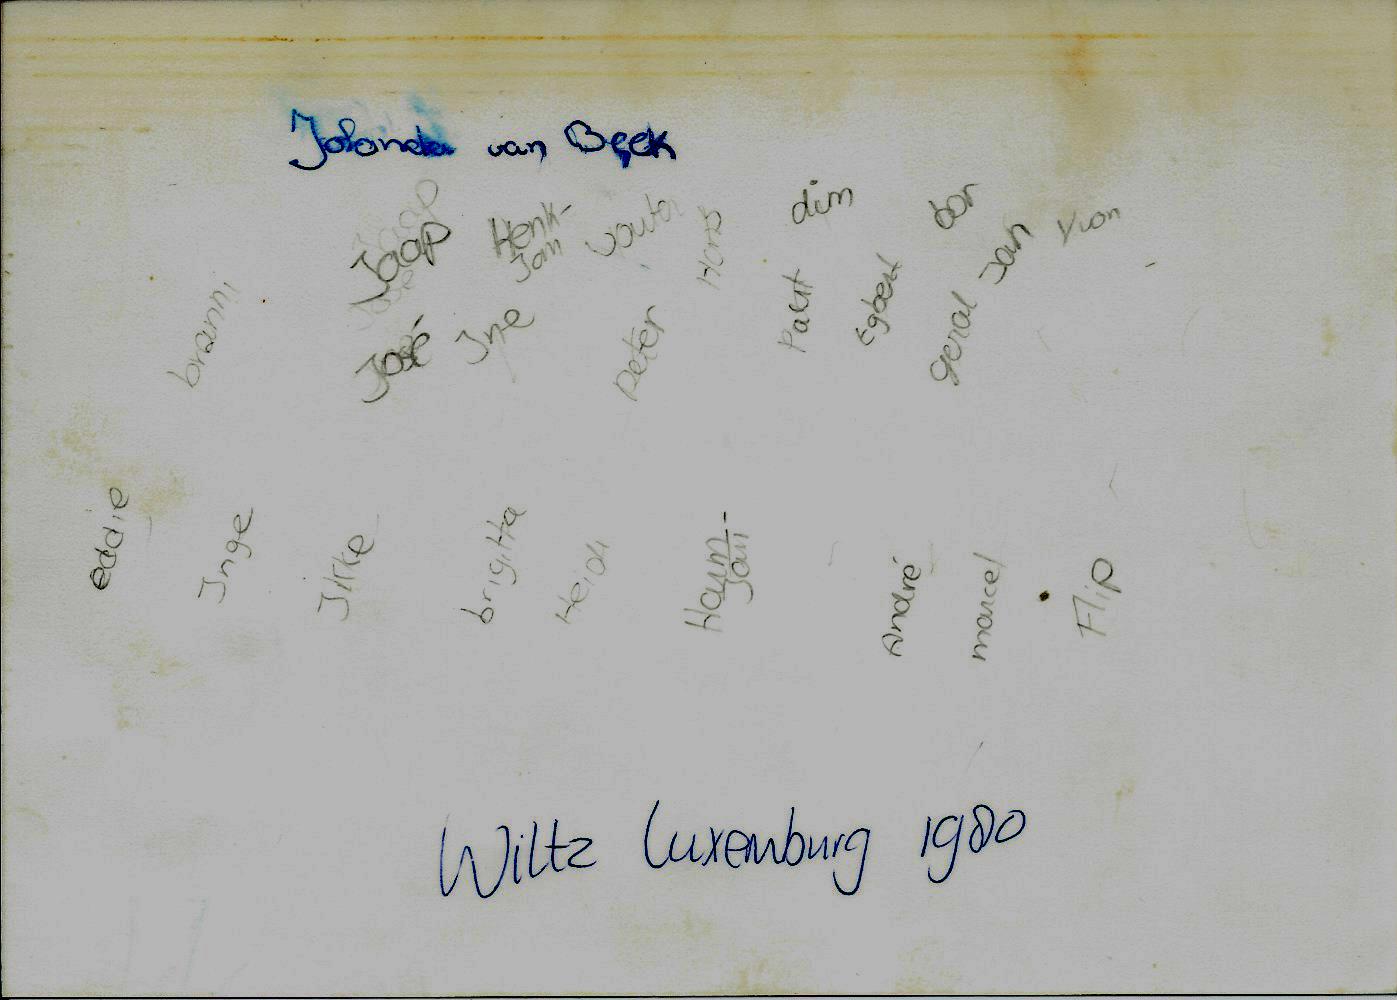 Jolanda van Beek
dim
Jaap Henk-
Jan wouter Hans bor Jan Yvon
branni José Ine Peter Egbert geral
eddie Inge brigitta Heidi Harm-
Jan André marcel Flip
Wiltz Luxemburg 1980